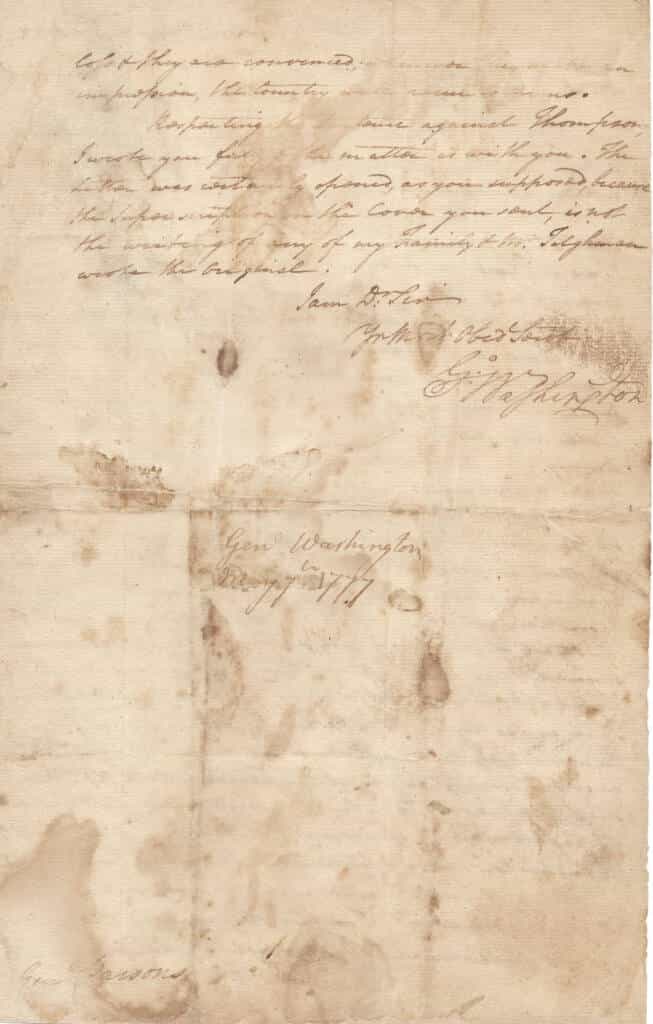 lost & they are convinced,
impression, the Country
Respecting the against Thompson,
I wrote you the matter is with you. The
Letter was certainly opened, as you supposed, because
the Superscription on the Cover you sent, is not
the writing of any of my Family & Mr. Tilghman
wrote the Original.
I am Dr Sir
Yr Most Obed Servt
Go: Washington
Gen Washington
May 7th 1777
Genl Parsons